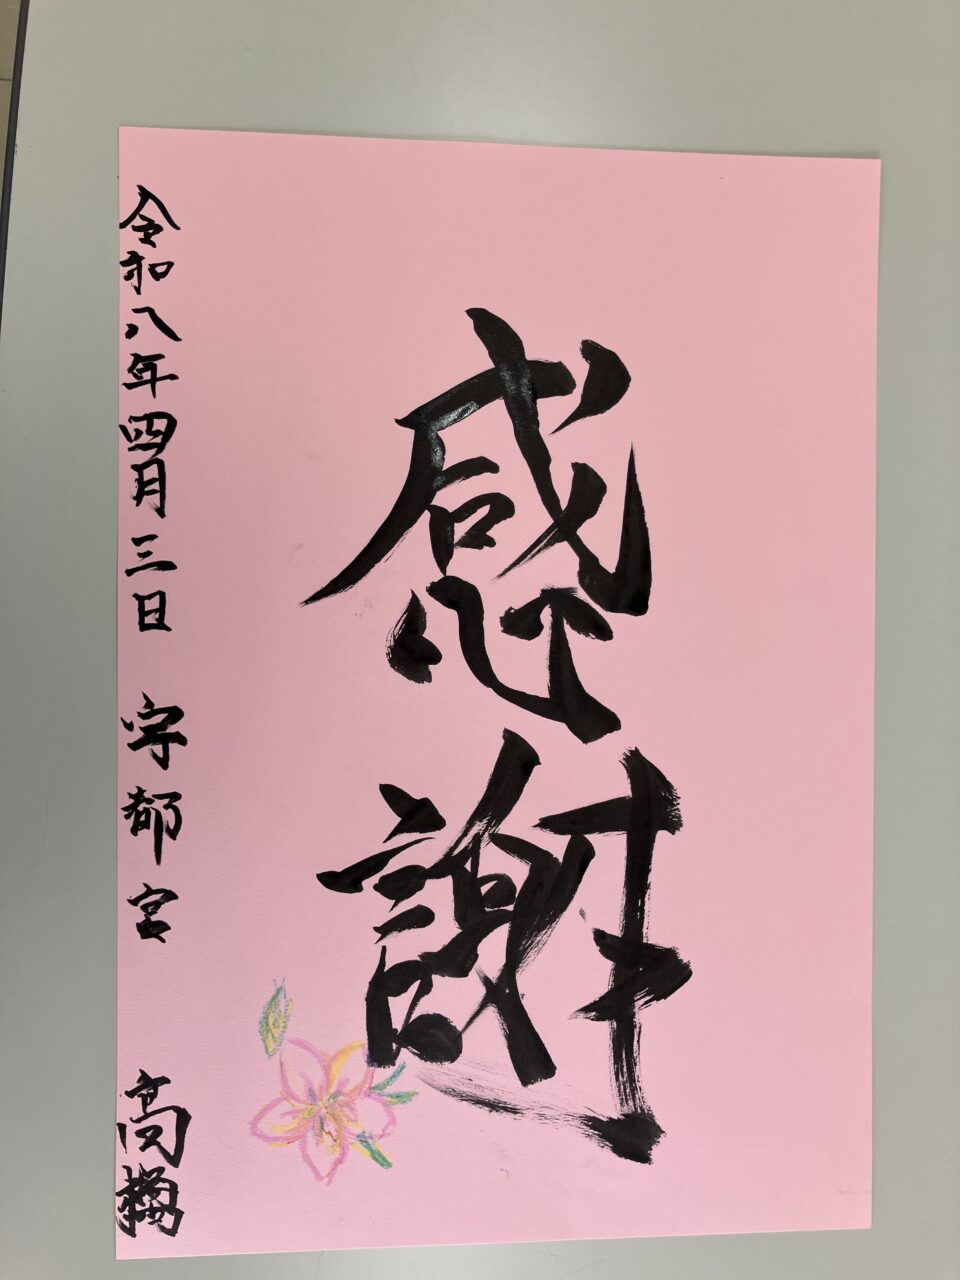 感謝
令和八年四月三日 宇都宮 高橋